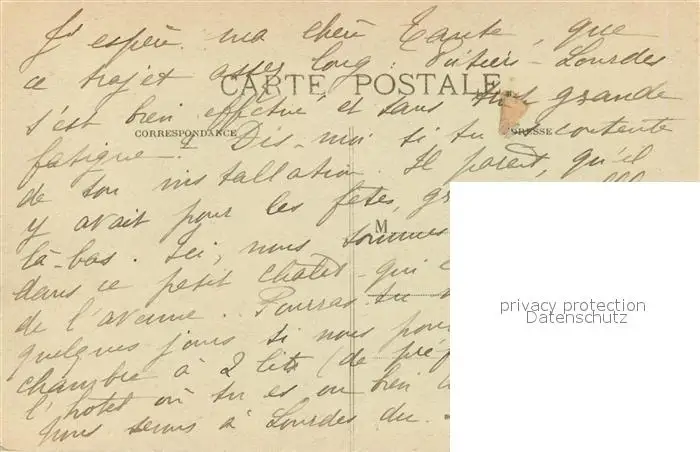 J'espère, ma chère Tante, que
ce trajet assez long : Poitiers - Lourdes
CARTE POSTALE
s'est bien effectué et sans trop grande
CORRESPONDANCE
fatigue. Dis-moi si tu es contente
de ton installation. Il paraît, qu'il
y avait pour les fêtes,
là-bas. Ici, nous sommes
M
dans ce petit chalet - qui
de l'avenue. Pourras-tu
quelques jours si nous
chambre à 2 lits (de
l'hôtel où tu es ou bien
nous serons à Lourdes du
privacy protection
Datenschutz